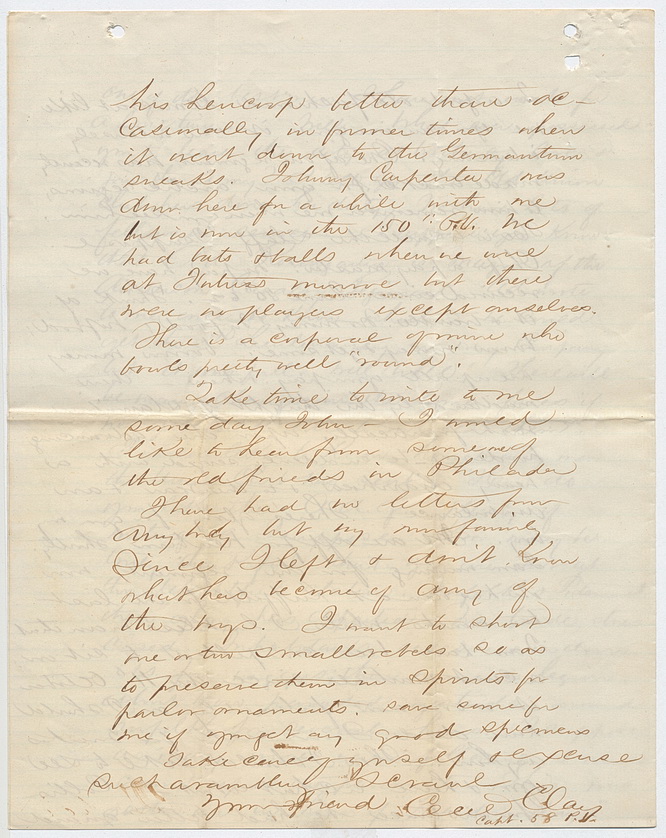 his hencoop better than oc-
casionally in former times when
it went down to the Germantown
sneaks. Johnny Carpenter was
down here for a while with me
but is now in the 150" P.V. We
had bats & balls when we were
at Fortress Monroe but there
were no players except ourselves.
There is a corporal of mine who
bowls pretty well "round".
Take time to write to me
some day John - I would
like to hear from some of
the old friends in Philada
I have had no letters from
any body but my own family
since I left & don't know
what has become of any of
the boys. I want to shoot
one or two small rebels so as
to preserve them in spirits for
parlor ornaments. save some for
me if you get any good specimens
Take care of yourself & excuse
such a rambling scrawl
Your friend Cecil Clay
Capt. 58 P.V.